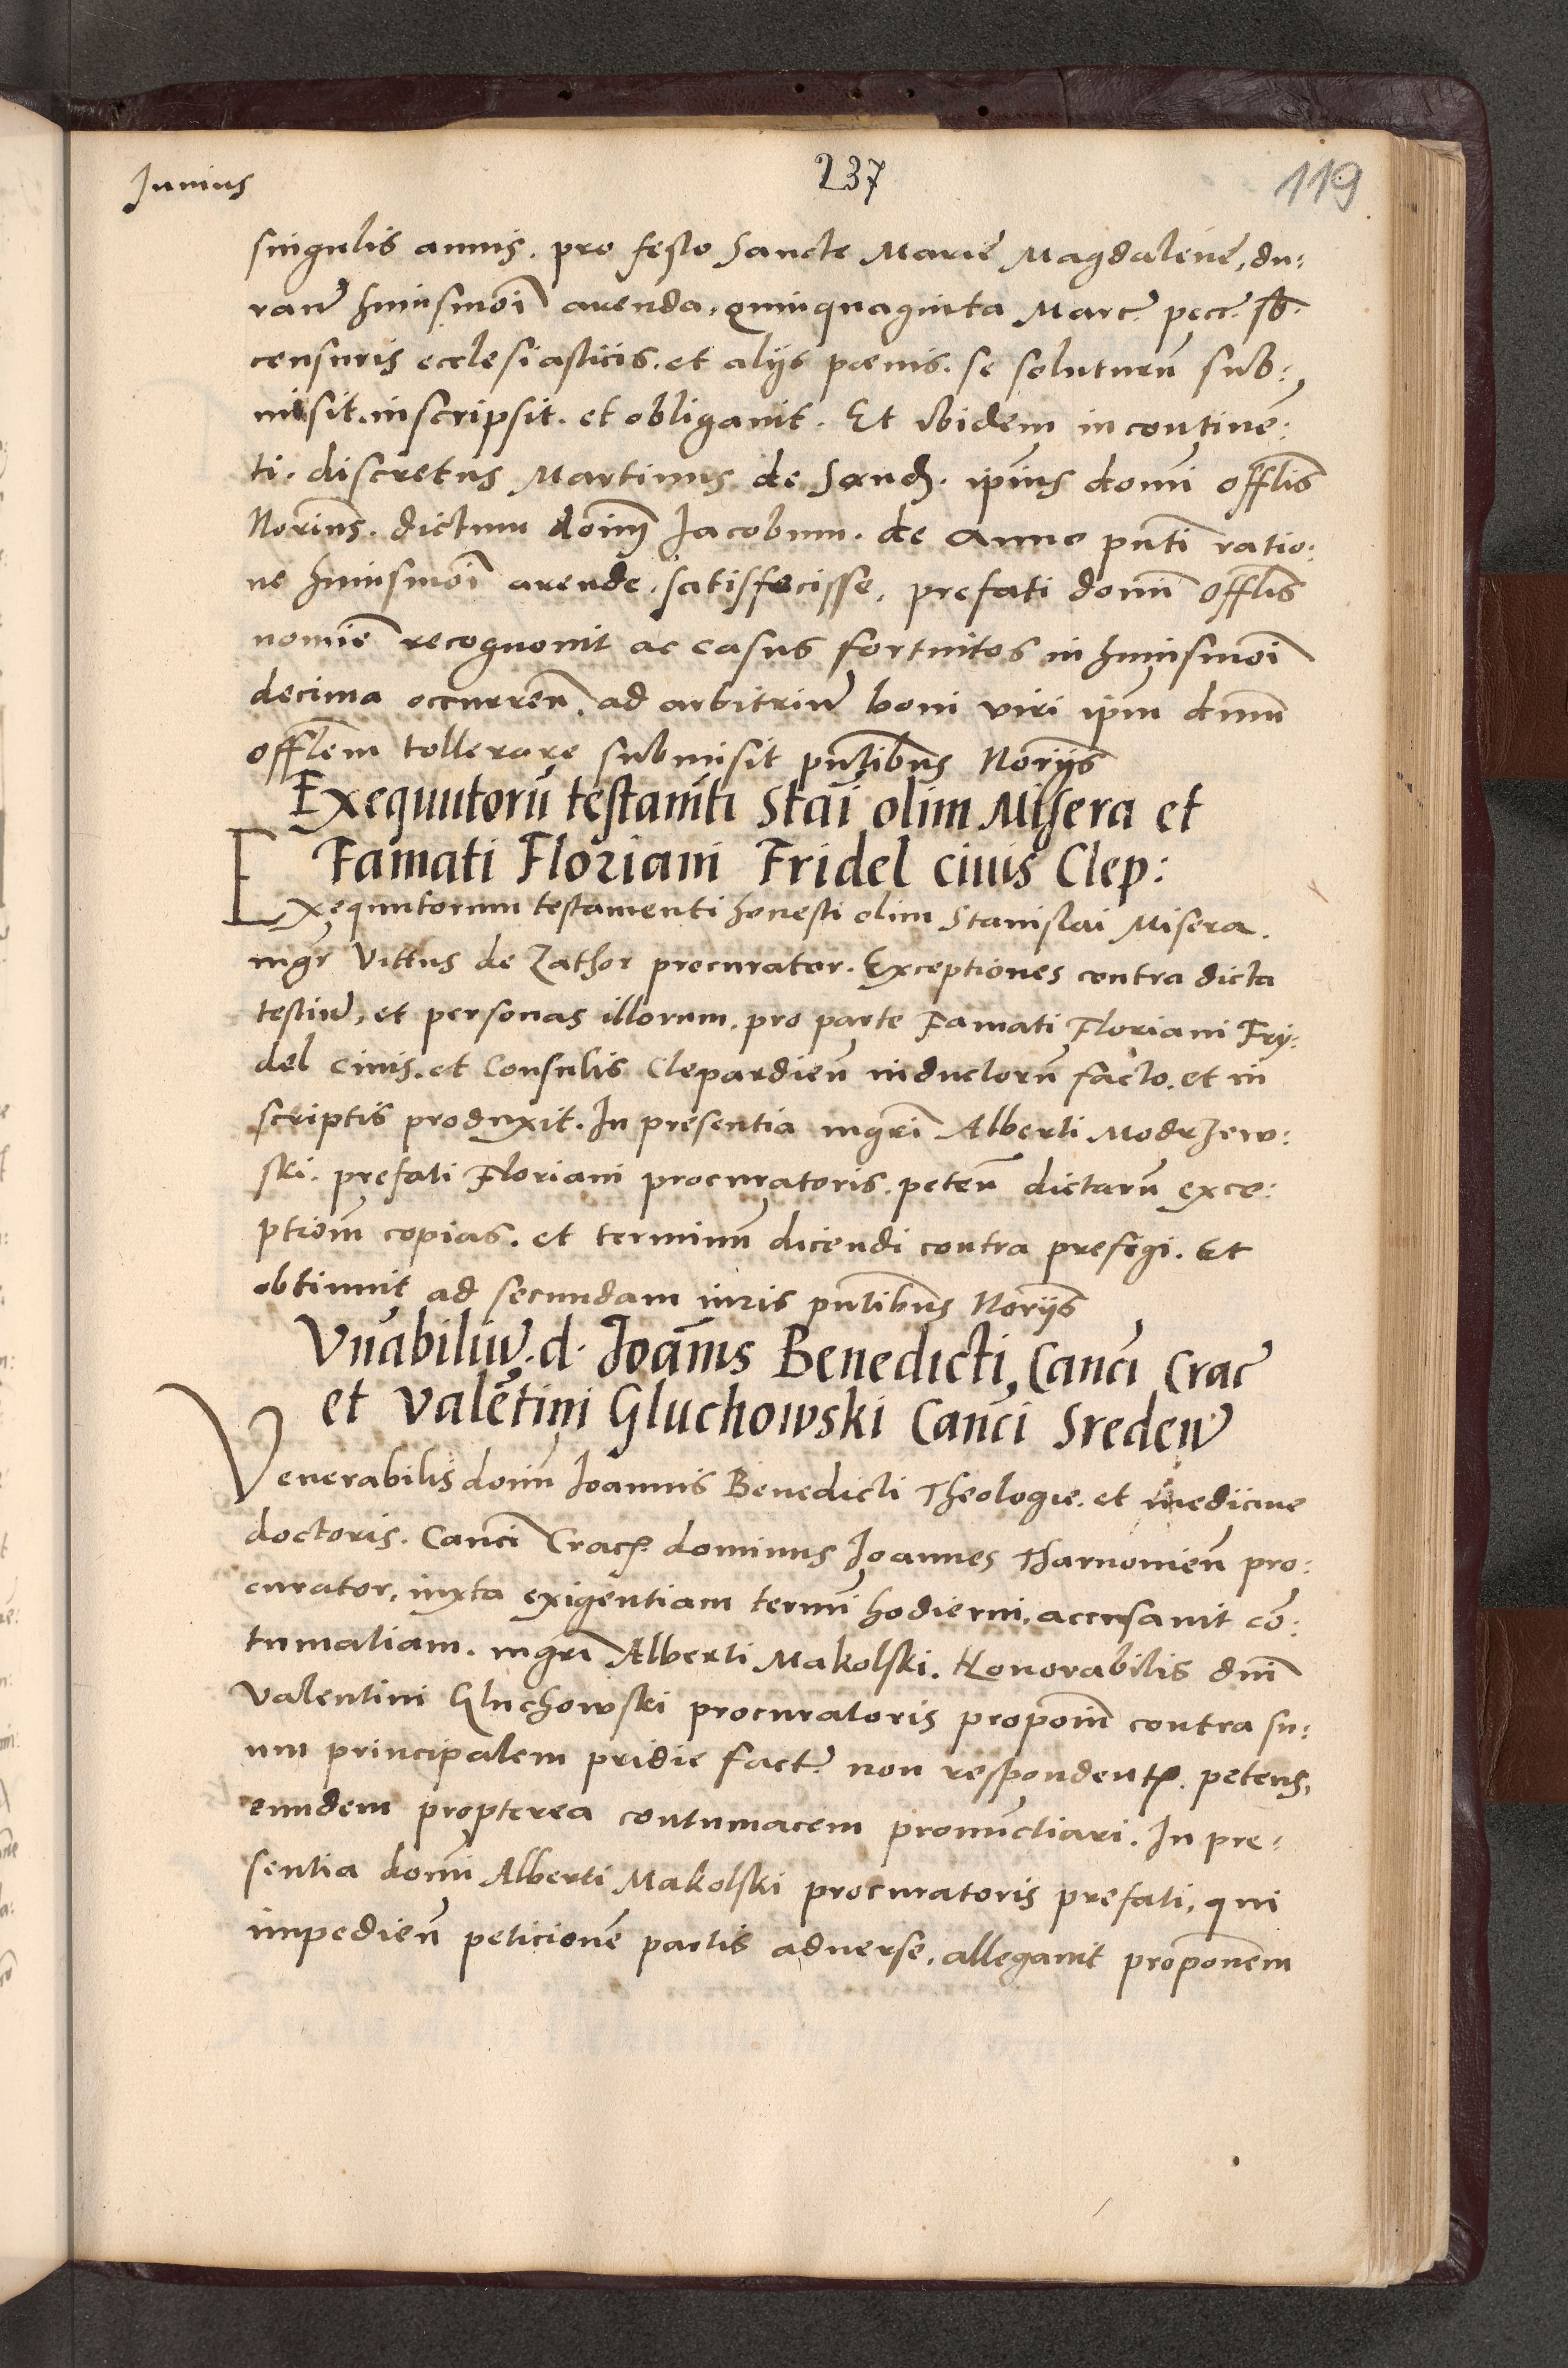 Junius
237
119
singulis annis. pro festo Sancte Marie Magdalene, du:
ran̄ huiusmōi arenda, quinquaginta Marc. pecc. sb̄.
censuris ecclesiasticis. et alijs pœnis. se soluturū sub:
misit. inscripsit. et obligauit. Et ibidem in continē:
ti. discretus Martinus de Sandz. ip̄ius domī offlīs
Norius. dictum doīm Jacobum. de anno pn̄ti ratio:
ne huiusmōi arende. satisfecisse. prefati domī offlīs
nomīe recognouit ac casus fortuitos in huiusmōi
decima occurreñ. ad arbitriū boni viri ipm̄ dnūm
offlēm tollerare submisit pn̄tibus Norijs
Exequutorū testamti Stāi olim Misera et
Famati Floriani Fridel ciuis Clep:
Exequutorum testamenti honesti olim Stanislai Misera.
mgr̄ Vittus de Zathor procurator. Exceptiones contra dicta
testiū, et personas illorum. pro parte Famati Floriani Fry:
del ciuis. et Consulis Clepardieñ inductorū facto. et in
scriptis produxit. In presentia mgrī Alberti Modrzew:
ski. prefati Floriani procuratoris. peteñ dictarū exce:
ptiom̄ copias. et terminū dicendi contra prefigi. Et
obtinuit ad secundam iuris pn̄tibus Norijs
Vnābiliū. d. Joānis Benedicti, Canci Crac
et Valētini Gluchowski Canci Sredeñ
Venerabilis domī Joannis Benedicti Theologie. et medicine
doctoris. Canci Crac. dominus Joannes Tharnouieñ pro:
curator, iuxta exigentiam termi hodierni. accusauit cō:
tumatiam. mgrī Alberti Makolski. Honorabilis dnī
Valentini Gluchowski procuratoris propōm contra su:
um principalem pridie fact. non respondent. petens,
eundem propterea contumacem pronuctiari. In pre:
sentia domī Alberti Makolski procuratoris prefati, qui
impedieñ peticionē partis aduerse. allegauit proponem